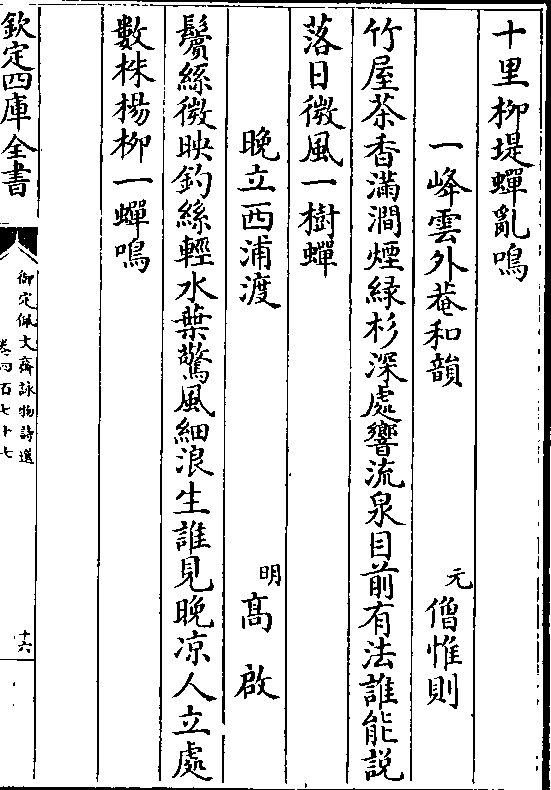 十里柳堤蟬亂鳴
一峰雲外菴和韻 元 僧惟則
竹屋茶香滿澗煙緑杉深處響流泉目前有法誰能説
落日微風一樹蟬
晚立西浦渡 明 高啟
鬢絲微映釣絲輕水葉驚風細浪生誰見晚凉人立處
數株楊柳一蟬鳴
欽定四庫全書
御定佩文齋詠物詩選
卷四百七十七
十六